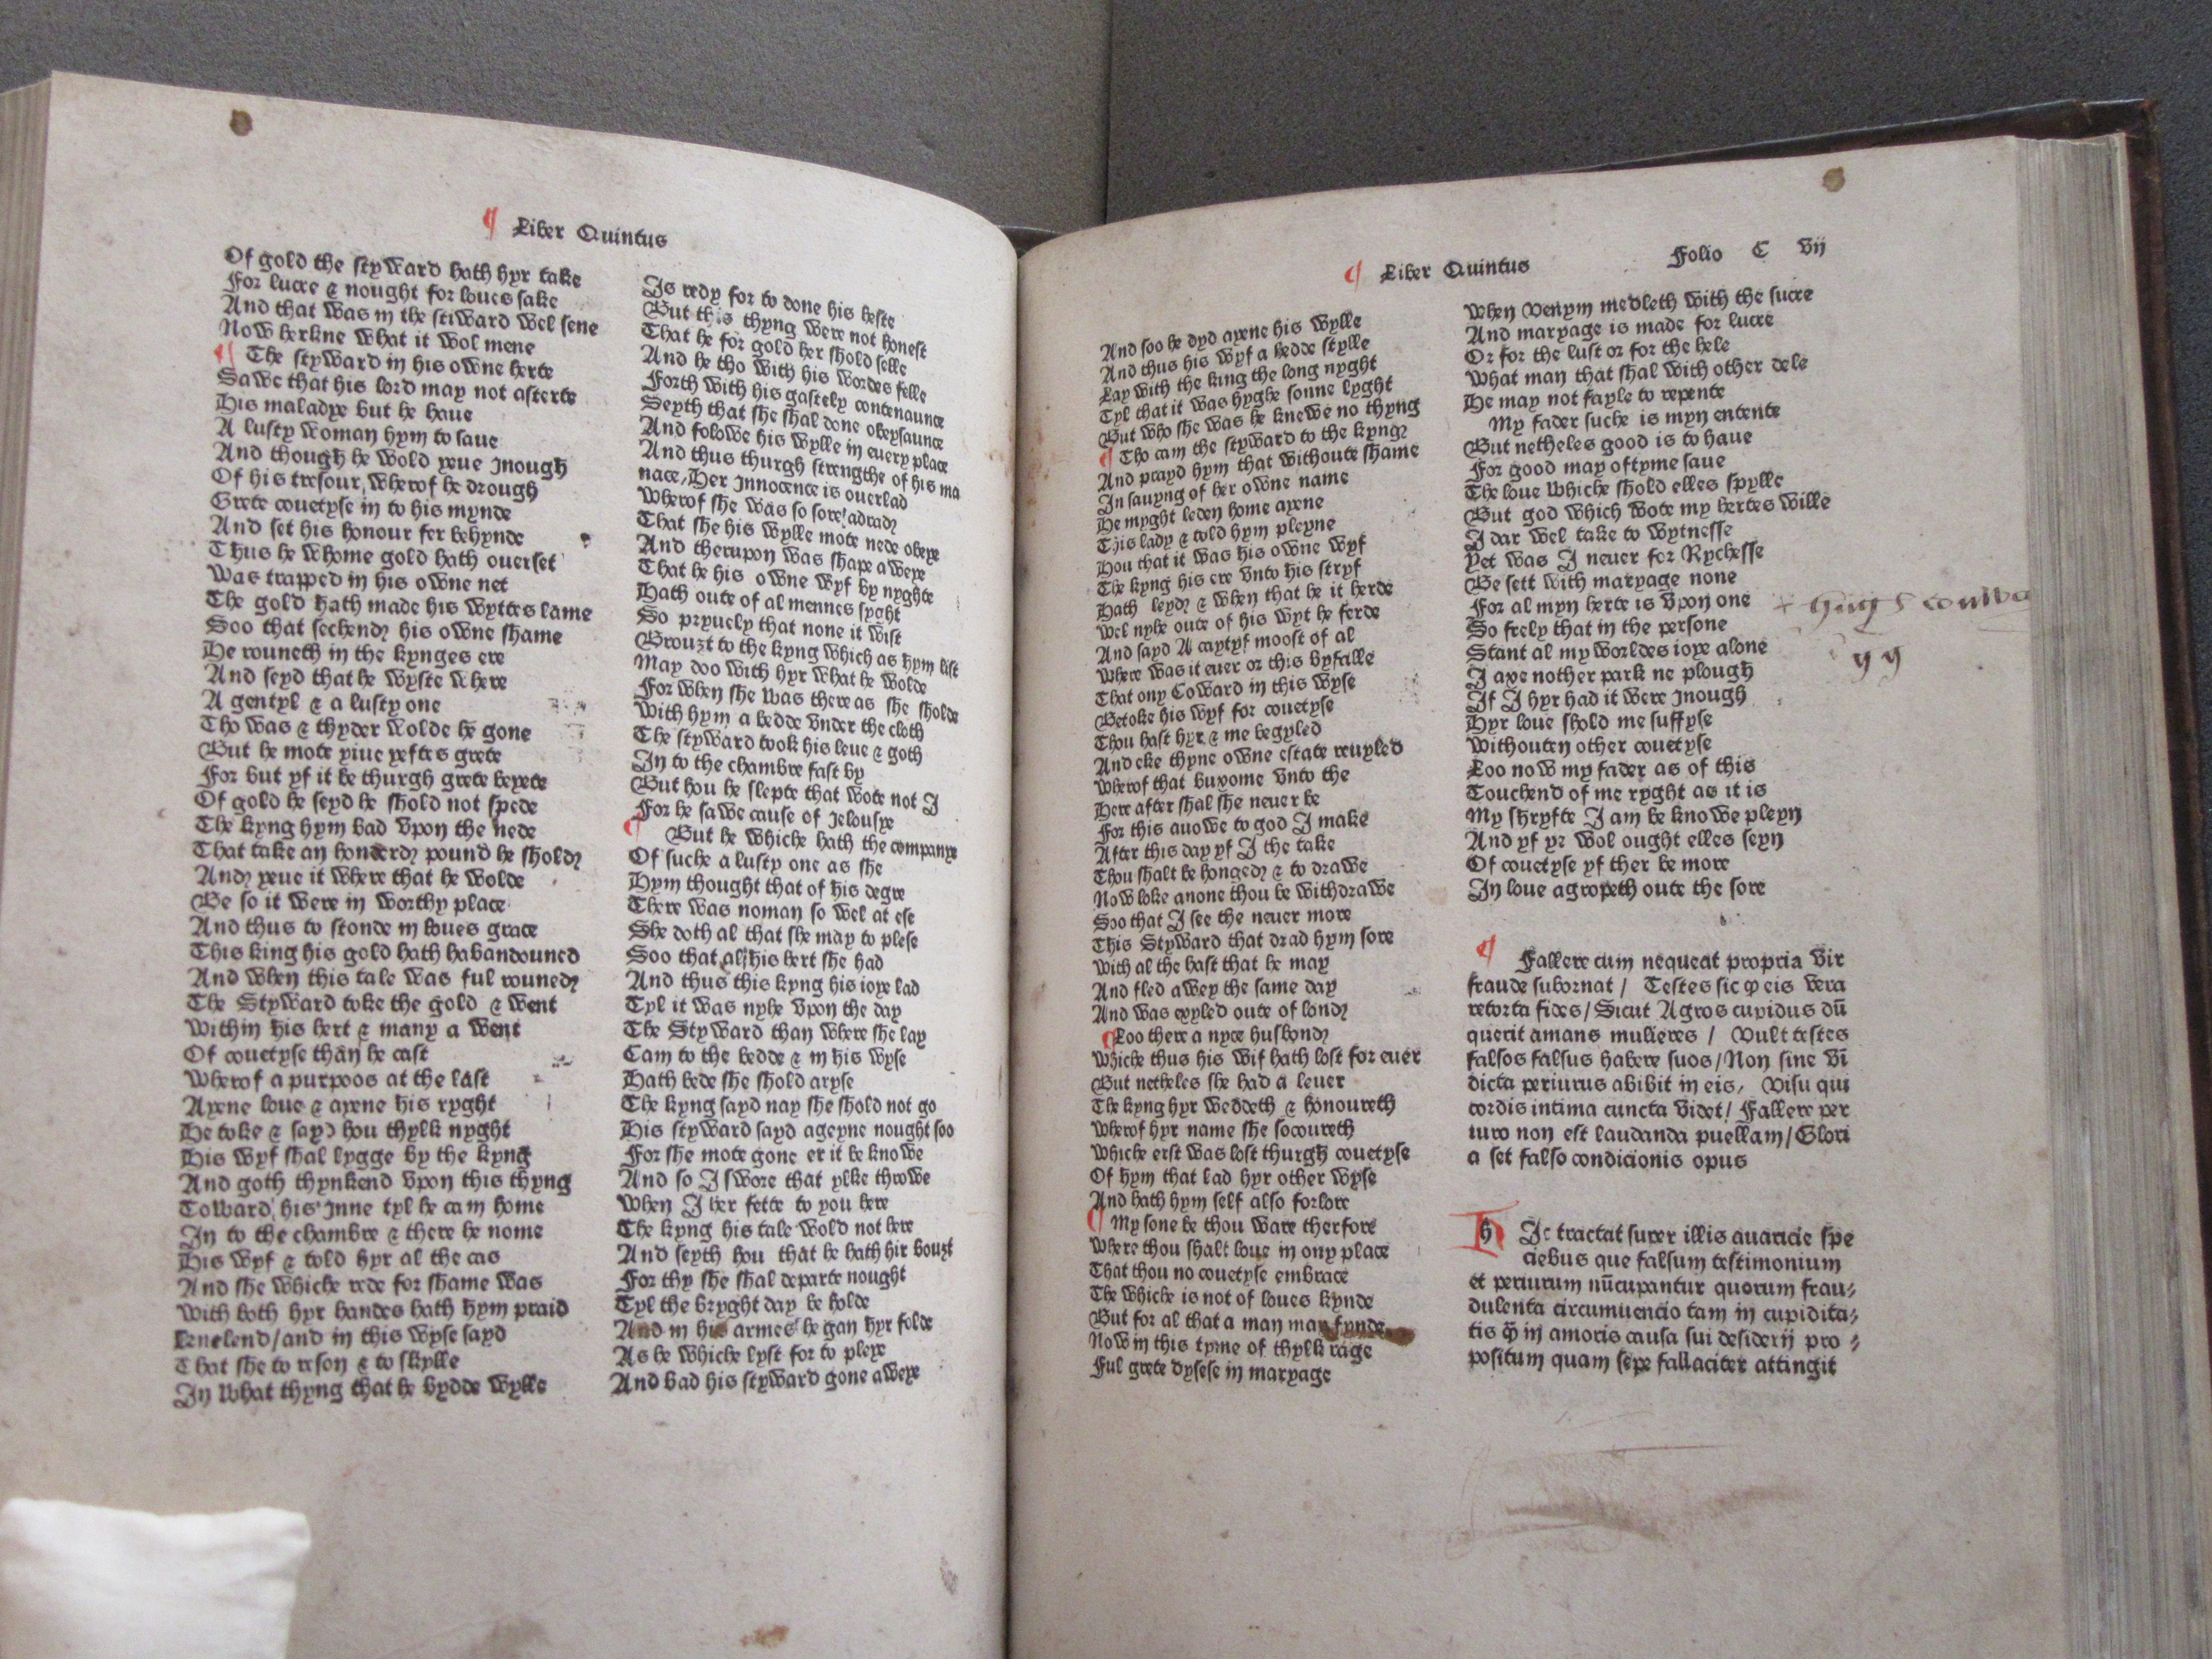 ¶ Liber Quintus
Of gold the styward hath hyr take
For lucre & nought for loues sake
And that was in the stiward wel sene
Now herkne what it wol mene
¶ The styward in his owne herte
Sawe that his lord may not asterte
His maladye but he haue
A lusty woman hym to saue
And though he wold yeue Inough
Of his tresour, wherof he drough
Grete couetyse in to his mynde
And set his honour fer behynde
Thus he whome gold hath ouerset
Was trapped in his owne net
The gold hath made his wyttes lame
Soo that sechend his owne shame
He rouneth in the kynges ere
And seyd that he wyste where
A gentyl & a lusty one
Tho was & thyder wolde he gone
But he mote yiue yeftes grete
For but yf it be thurgh grete beyete
Of gold he seyd he shold not spede
The kyng hym bad vpon the nede
That take an honderd pound he shold
And yeue it where that he wolde
Be so it were in worthy place
And thus to stonde in loues grace
This king his gold hath habandouned
And when this tale was ful rouned
The Styward toke the gold & went
Within his hert & many a went
Of couetyse than he cast
Wherof a purpoos at the last
Ayene loue & ayene his ryght
He toke & sayd hou thylk nyght
His wyf shal lygge by the kyng
And goth thynkend vpon this thyng
Toward his Inne tyl he cam home
In to the chambre & there he nome
His wyf & told hyr al the cas
And she whiche rede for shame was
With both hyr handes hath hym praid
knelend/and in this wyse sayd
That she to reson & to skylle
In what thyng that he bydde wylle
Is redy for to done his heste
But this thyng were not honest
That he for gold her shold selle
And he tho with his wordes felle
Forth with his gastely contenaunce
Seyth that she shal done obeysaunce
And folowe his wylle in euery place
And thus thurgh strengthe of his ma
nace, Her Innocence is ouerlad
Wherof she was so sore adrad
That she his wylle mote nede obeye
And therupon was shape a weye
That he his owne wyf by nyghte
Hath oute of al mennes syght
So pryuely that none it wist
Brouzt to the kyng which as hym list
May doo with hyr what he wolde
For when she was there as she sholde
With hym a bedde vnder the cloth
The styward took his leue & goth
In to the chambre fast by
But hou he slepte that wote not I
For he sawe cause of Jelousye
¶ But he whiche hath the companye
Of suche a lusty one as she
Hym thought that of his degre
There was noman so wel at ese
She doth al that she may to plese
Soo that al his hert she had
And thus this kyng his ioye lad
Tyl it was nyhe vpon the day
The Styward than where she lay
Cam to the bedde & in his wyse
Hath bede she shold aryse
The kyng sayd nay she shold not go
His styward sayd ageyne nought soo
For she mote gone er it be knowe
And so I swore that ylke throwe
When I her fette to you here
The kyng his tale wold not here
And seyth hou that he hath hir bouzt
For thy she shal departe nought
Tyl the bryght day be holde
And in his armes he gan hyr folde
As he whiche lyst for to pleye
And bad his styward gone aweye
¶ Liber Quintus Folio C vij
And soo he dyd ayene his wylle
And thus his wyf a bedde stylle
Lay with the king the long nyght
Tyl that it was hyghe sonne lyght
But who she was he knewe no thyng
¶ Tho cam the styward to the kyng
And prayd hym that withoute shame
In sauyng of her owne name
He myght leden home ayene
This lady & told hym pleyne
Hou that it was his owne wyf
The kyng his ere vnto his stryf
Hath leyd & when that he it herde
Wel nyhe oute of his wyt he ferde
And sayd A caytyf moost of al
Where was it euer or this byfalle
That ony Coward in this wyse
Betoke his wyf for couetyse
Thou hast hyr & me begyled
And eke thyne owne estate reuyled
Wherof that buxome vnto the
Here after shal she neuer be
For this auowe to god I make
After this day yf I the take
Thou shalt be honged & to drawe
Now loke anone thou be withdrawe
Soo that I see the neuer more
This Styward that drad hym sore
With al the hast that he may
And fled awey the same day
And was exyled oute of lond
¶ Loo there a nyce husbond
Whiche thus his wif hath lost for euer
But netheles she had a leuer
The kyng hyr weddeth & honoureth
Wherof hyr name she socoureth
Whiche erst was lost thurgh couetyse
Of hym that lad hyr other wyse
And hath hym self also forlore
¶ My sone be thou ware therfore
Where thou shalt loue in ony place
That thou no couetyse embrace
The whiche is not of loues kynde
But for al that a man may fynde
Now in this tyme of thylk rage
Ful grete dysese in maryage
When venym medleth with the sucre
And maryage is made for lucre
Or for the lust or for the hele
What man that shal with other dele
He may not fayle to repente
My fader suche is myn entente
But netheles good is to haue
For good may oftyme saue
The loue whiche shold elles spylle
But god which wote my hertes wille
I dar wel take to wytnesse
Yet was I neuer for Rychesse
Be sett with maryage none
For al myn herte is vpon one
So frely that in the persone
Stant al my worldes ioye alone
I axe nother park ne plough
If I hyr had it were Inough
Hyr loue shold me suffyse
Withouten other couetyse
Loo now my fader as of this
Touchend of me ryght as it is
My shryfte I am be knowe pleyn
And yf ye wol ought elles seyn
Of couetyse yf ther be more
In loue agropeth oute the sore
¶ Fallere cum nequeat propria vir
fraude subornat / Testes sic ꝙ eis vera
retorta fides/Sicut Agros cupidus dū
querit amans mulieres / Vult testes
falsos falsus habere suos/Non sine vi
dicta periurus abibit in eis, Visu qui
cordis intima cuncta videt/ Fallere per
iuro non est laudanda puellam/Glori
a set falso condicionis opus
HIc tractat super illis auaricie spe
ciebus que falsum testimonium
et periurum nūcupantur quorum frau-
dulenta circumuencio tam in cupidita-
tis ꝙ̄ in amoris causa sui desiderij pro -
positum quam sepe fallaciter attingit